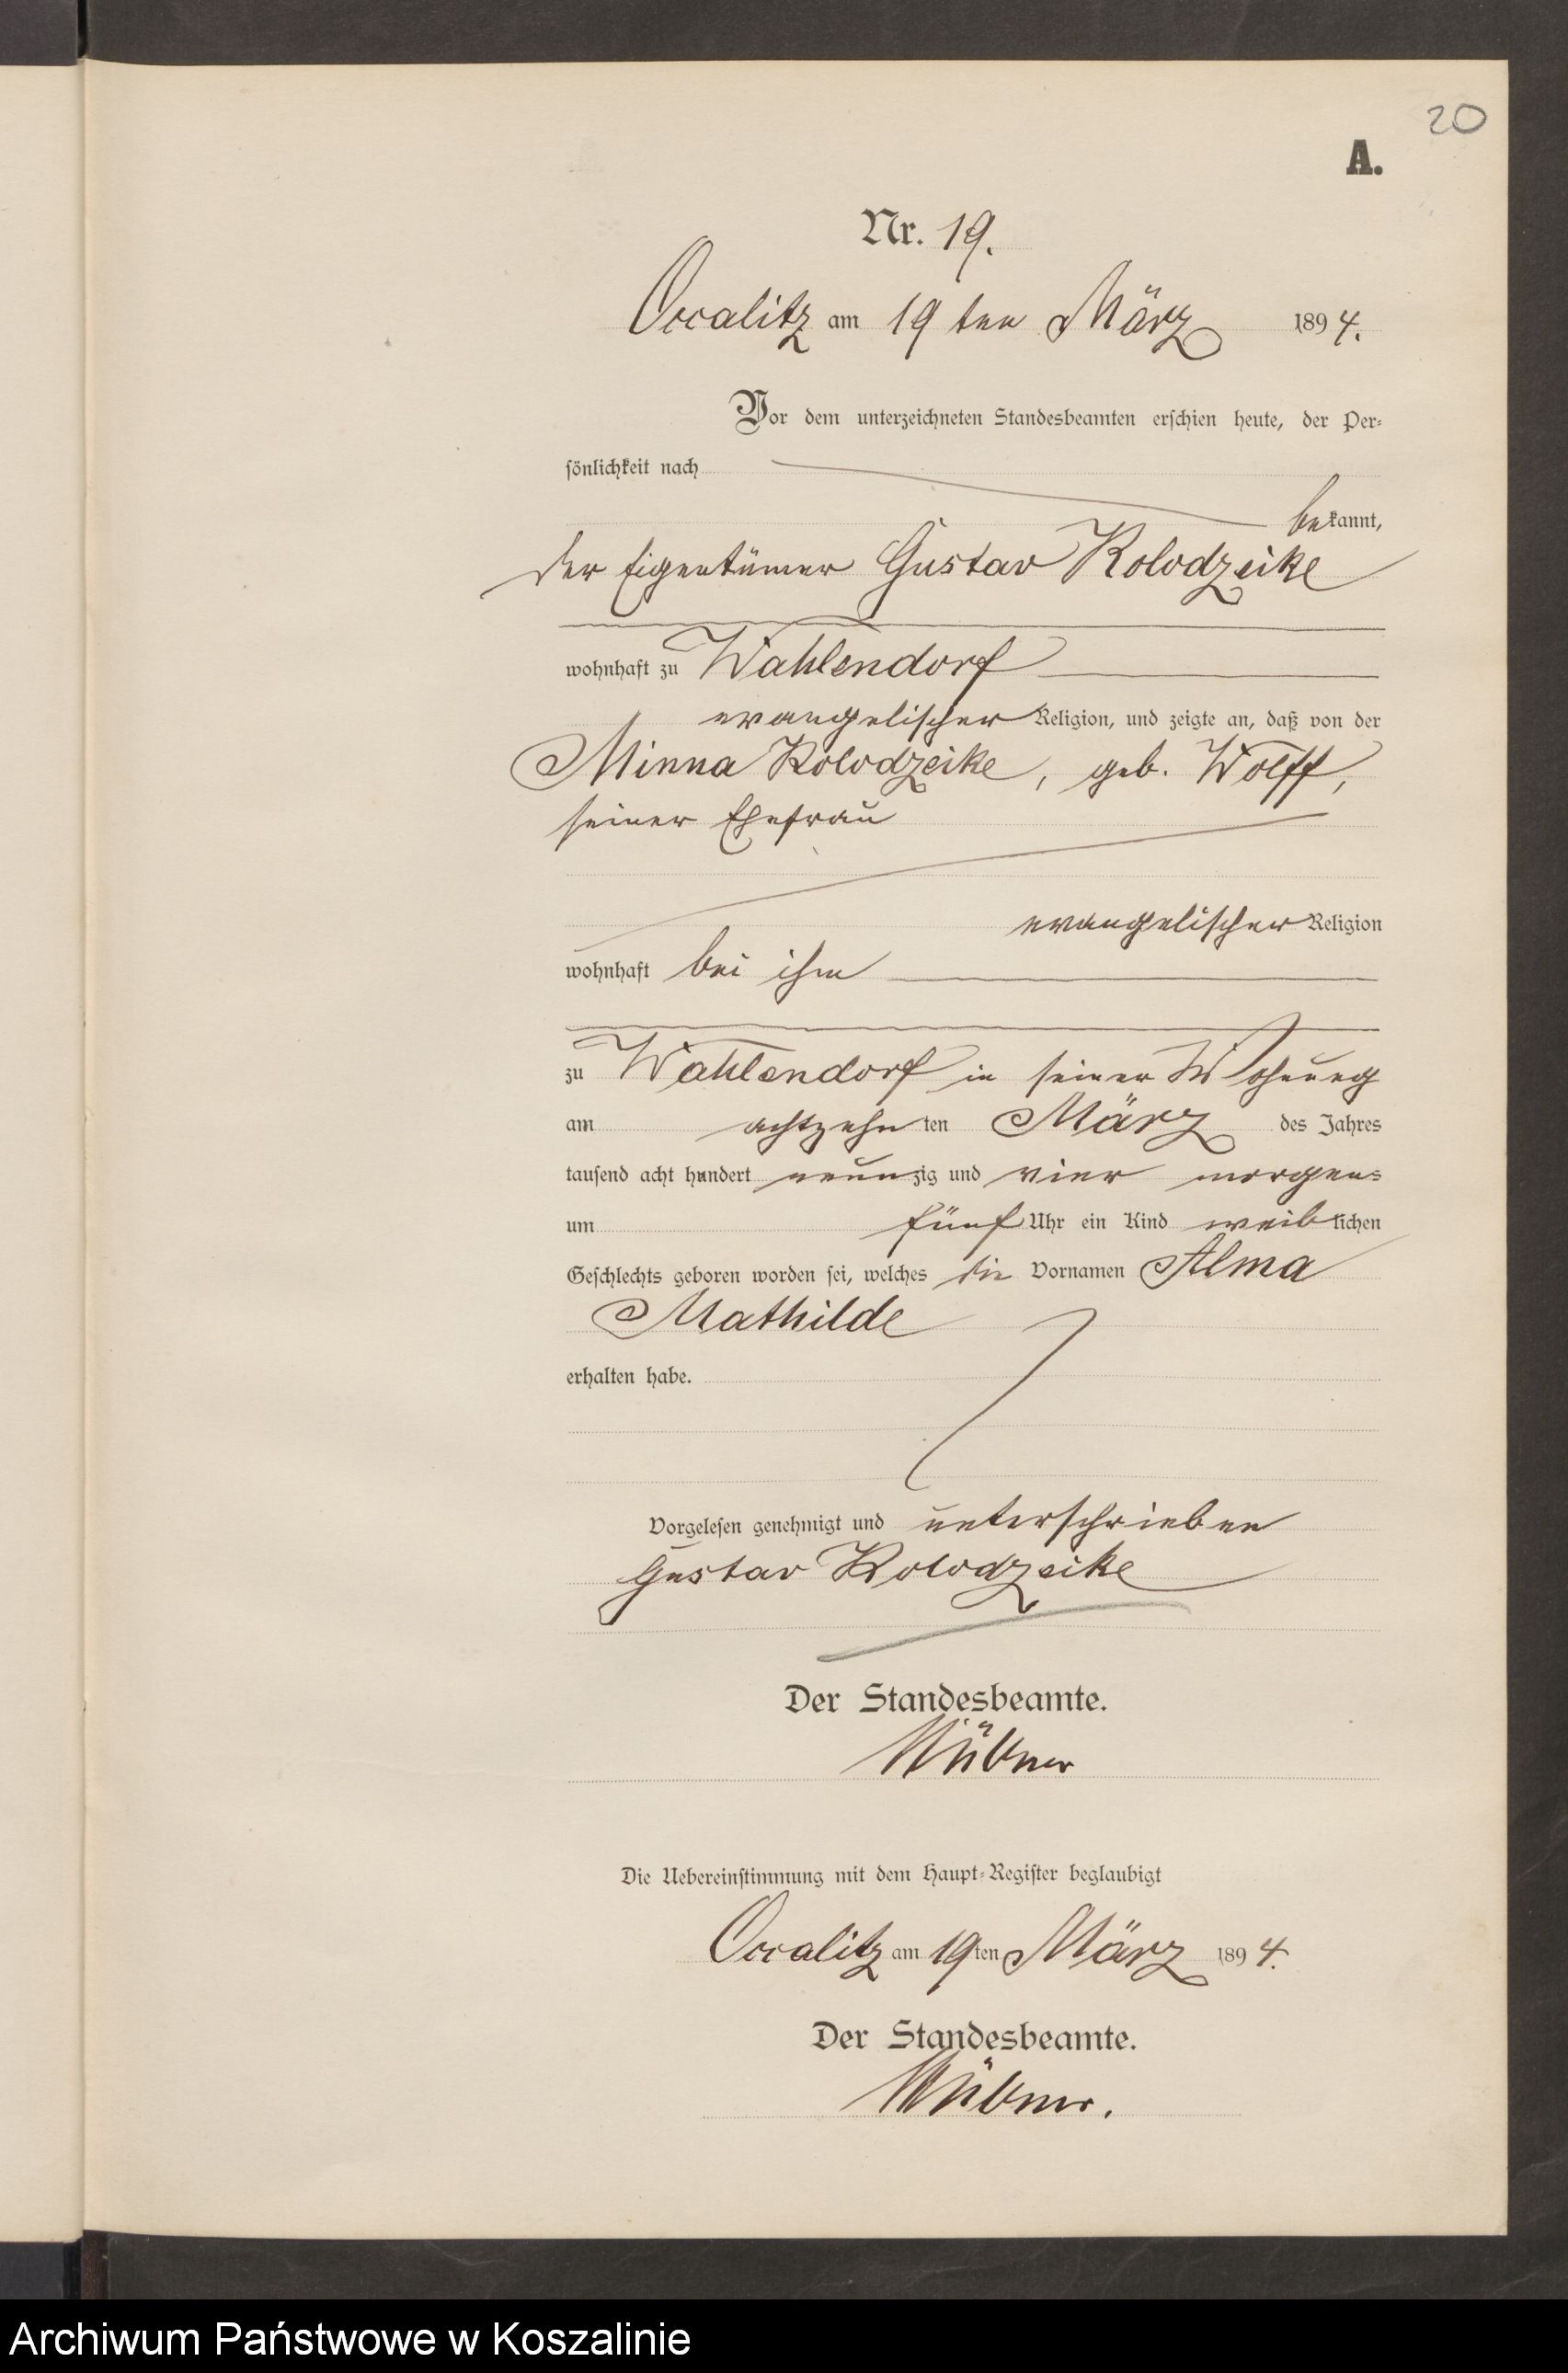 20
A.
Nr. 19.
Occalitz am 19 ten März 1894.
Vor dem unterzeichneten Standesbeamten erschien heute, der Per-
sönlichkeit nach
bekannt,
der Eigentümer Gustav Kolodzeike
wohnhaft zu Wahlendorf
evangelischer Religion, und zeigte an, daß von der
Minna Kolodzeike, geb. Wolff,
seiner Ehefrau
evangelischer Religion
wohnhaft bei ihm
zu Wahlendorf in seiner Wohnung
am achtzehnten März des Jahres
tausend acht hundert neunzig und vier morgens
um fünf Uhr ein Kind weiblichen
Geschlechts geboren worden sei, welches die Vornamen Alma
Mathilde
erhalten habe.
Vorgelesen genehmigt und unterschrieben
Gustav Kolodzeike
Der Standesbeamte.
Die Uebereinstimmung mit dem Haupt-Register beglaubigt
Occalitz am 19ten März 1894.
Der Standesbeamte.
Archiwum Państwowe w Koszalinie